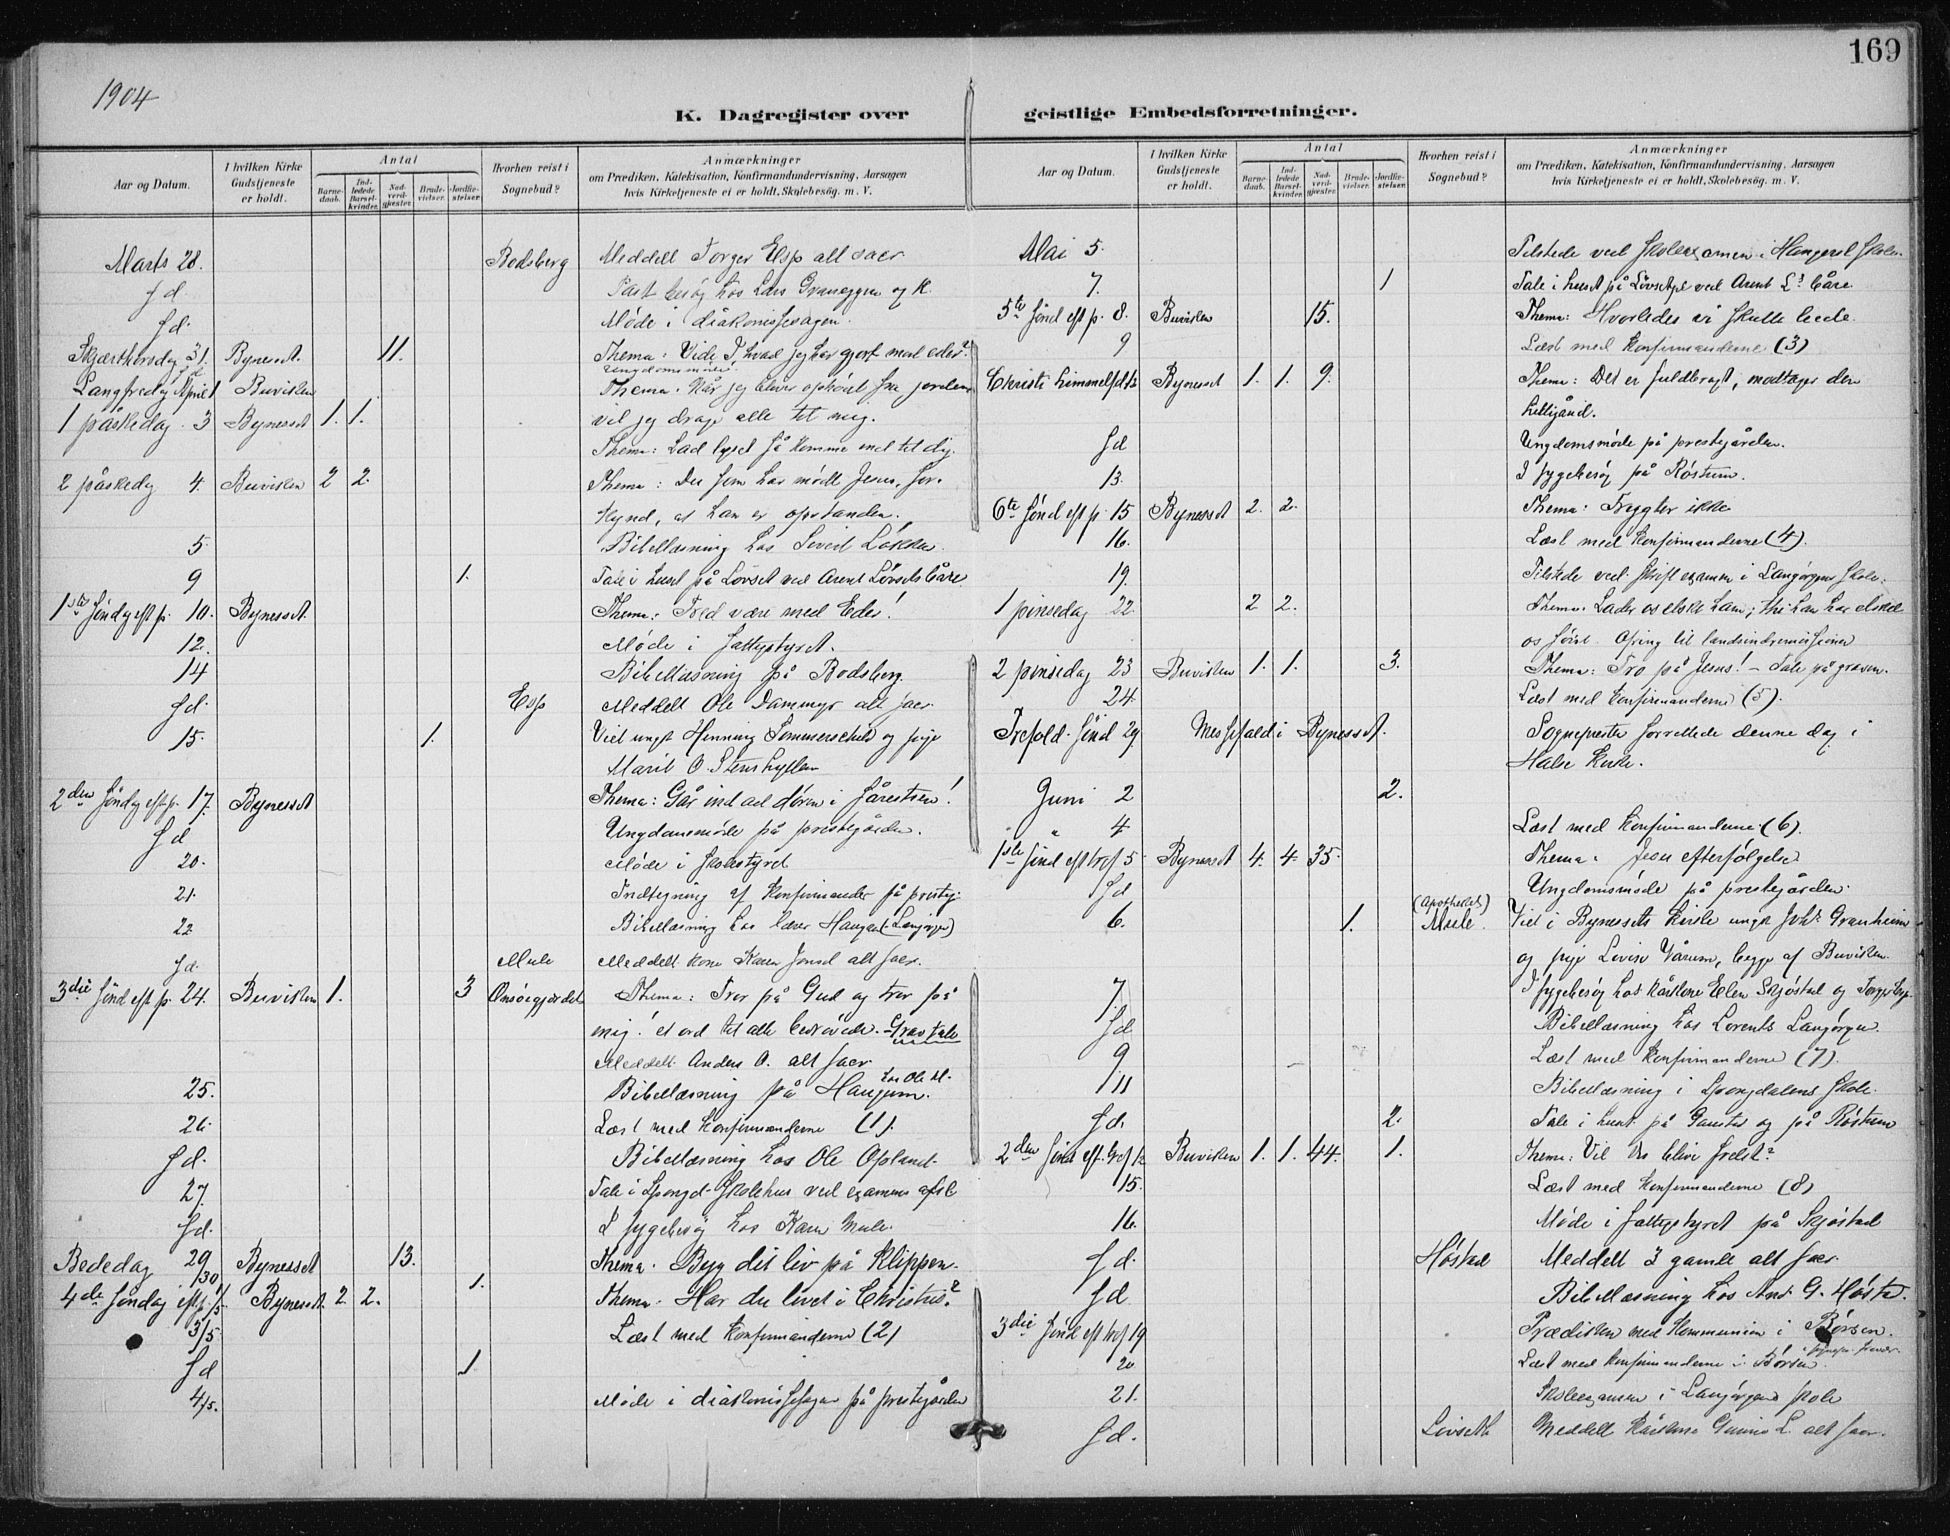 169
1904
K. Dagregister over geistlige Embedsforretninger.
Aar og Datum.
I hvilken Kirke Gudstjeneste er holdt.
Antal
Barnedaab.
Indledede Barselkvinder.
Nadverdgjester.
Brudevielser.
Jordfæstelser.
Hvorhen reist i Sognebud?
Anmærkninger
om Prædiken, Katekisation, Konfirmandundervisning, Aarsagen
hvis Kirketjeneste ei er holdt, Skolebesøg. m. V.
Marts 28. Bodsberg Meddelt Torger Esp alt sacr.
S. d. besøg hos Lars Graneggen og K.
S. d. Møde i diakonissesagen.
Skjærthorsdag 31. Bynesset. 11. Thema: Vide I, hvad jeg har gjort med eder?
Ungdomsmøde
Langfredag April 1 Buviken Thema. Når jeg bliver ophøiet fra jorden
vil jeg drage alle til mig.
1 påskedag 3 Bynesset 1. 1. Thema: Lad lyset få komme ind til dig.
2 påskedag 4. Buviken 2 2. Thema: Du som har mødt Jesus, for-
kynd, at han er opstanden.
5 Bibellæsning hos Sivert Løkken.
9 1. Tale i huset på Løvset ved Arent Løvsets båre
1ste Søndag eft p. 10. Bynesset. Thema: Fred være med Eder!
12. Møde i fattigstyret.
14 Bibellæsning på Bodsberg.
S. d. Esp Meddelt Ole Dammyr alt sacr.
15. 1. Viet ungk Henning Sommerschild og pige
Marit O. Stenshyllen
2den Søndag eft p. 17. Bynesset Thema: Gå ind ad døren i fårestien!
S d Ungdomsmøde på prestegården.
20. Møde i skolestyret
21. Indtegning af konfirmander på presteg.
22 Bibellæsning hos lærer Haugen (Langørgen)
S. d. Mule Meddelt kone Karen Jonsd alt sacr.
3die Sønd eft p. 24. Buviken 1. 3 Onsøiegjerdet Thema: Tror på Gud og tror på
mig! et ord til alle bedrøvede. Gravtale
Meddelt Anders O. alt sacr
25. Bibellæsning på Haugum. hos Ole H.
26 Læst med konfirmanderne (1).
S. d. Bibellæsning hos Ole Opland.
27. Tale i Spongd. Skolehus ved examens afsl
S. d. I sygebesøg hos Karen Mule.
Bededag 29 Bynesset 13. Thema. Byg dit liv på klippen.
1/30 1.
4de Søndag eft p. 1/5 Bynesset 2 2. Thema. Har du livet i Christus?
3/5 Læst med konfirmanderne (2)
S d 1
4/5. Møde i diakonissesagen på prestegården
Mai 5. Tilstede ved skoleexamen i Haugerel Skole.
7. 1 Tale i huset på Løvsetpl ved Arent L's båre
5te Sønd eft p. 8. Buviken 15. Thema: Hvorledes vi skulle bede.
9 Læst med konfirmanderne (3)
Christi himmelf.d. 12 Bynesset 1. 1. 9. Thema: Det er fuldbragt, modtager den
helligånd.
S d Ungdomsmøde på prestegården.
13. I sygebesøg på Røstum.
6te Sønd eft p. 15 Bynesset 2. 2. Thema: Frygter ikke
16. Læst med konfirmanderne (4).
19. Tilstede ved skriftl examen i Langørgens skole.
1 pinsedag 22. 2 2. Thema. Lader os elske ham; thi han har elsket
os først. Ofring til landsindremissionen
2 pinsedag 23 Buviken 1. 1. 3. Thema: Tro på Jesus! - Tale på graven.
24. Læst med konfirmanderne (5).
Trefold. Sønd 29 Messefald i Bynesset. Sognepresten forrettede denne dag i
Halse kirke.
Juni 2 2.
" 4 Læst med konfirmanderne (6).
1ste Sønd eft tref 5 Bynesset 4. 4. 35. Thema. Jesu efterfølgelse
S d Ungdomsmøde på prestegården.
6. 1. (Apotheket) Mule. Viet i Bynessets kirke ungk Joh. Granheim
og pige Lovise Vårum, begge af Buviken.
7. I sygebesøg hos kårkone Elen Skjøstad og Torger Esp
S d Bibellæsning hos Lorents Langørgen
9 Læst med konfirmanderne (7).
11 Bibellæsning i Spongdalens skole.
S. d. 2. Tale i huset på Ganster og på Røstum
2den Sønd eft. tref 12 Buviken 1. 1. 44. 1. Thema: Vil du blive frelst?
15. Læst med konfirmanderne (8)
16. Møde i fattigstyret på Skjøstad
S. d. Høstad Meddelt 3 gamle alt sacr.
S d Bibellæsning hos And. G. Høstad.
3die Sønd eft tref 19 Prædiken med kommunion i Børsen.
20 Læst med konfirmanderne i Børsen.
21. Skoleexamen i Langørgens skole
S. d. Løvseth Meddelt kårkone L. alt sacr.